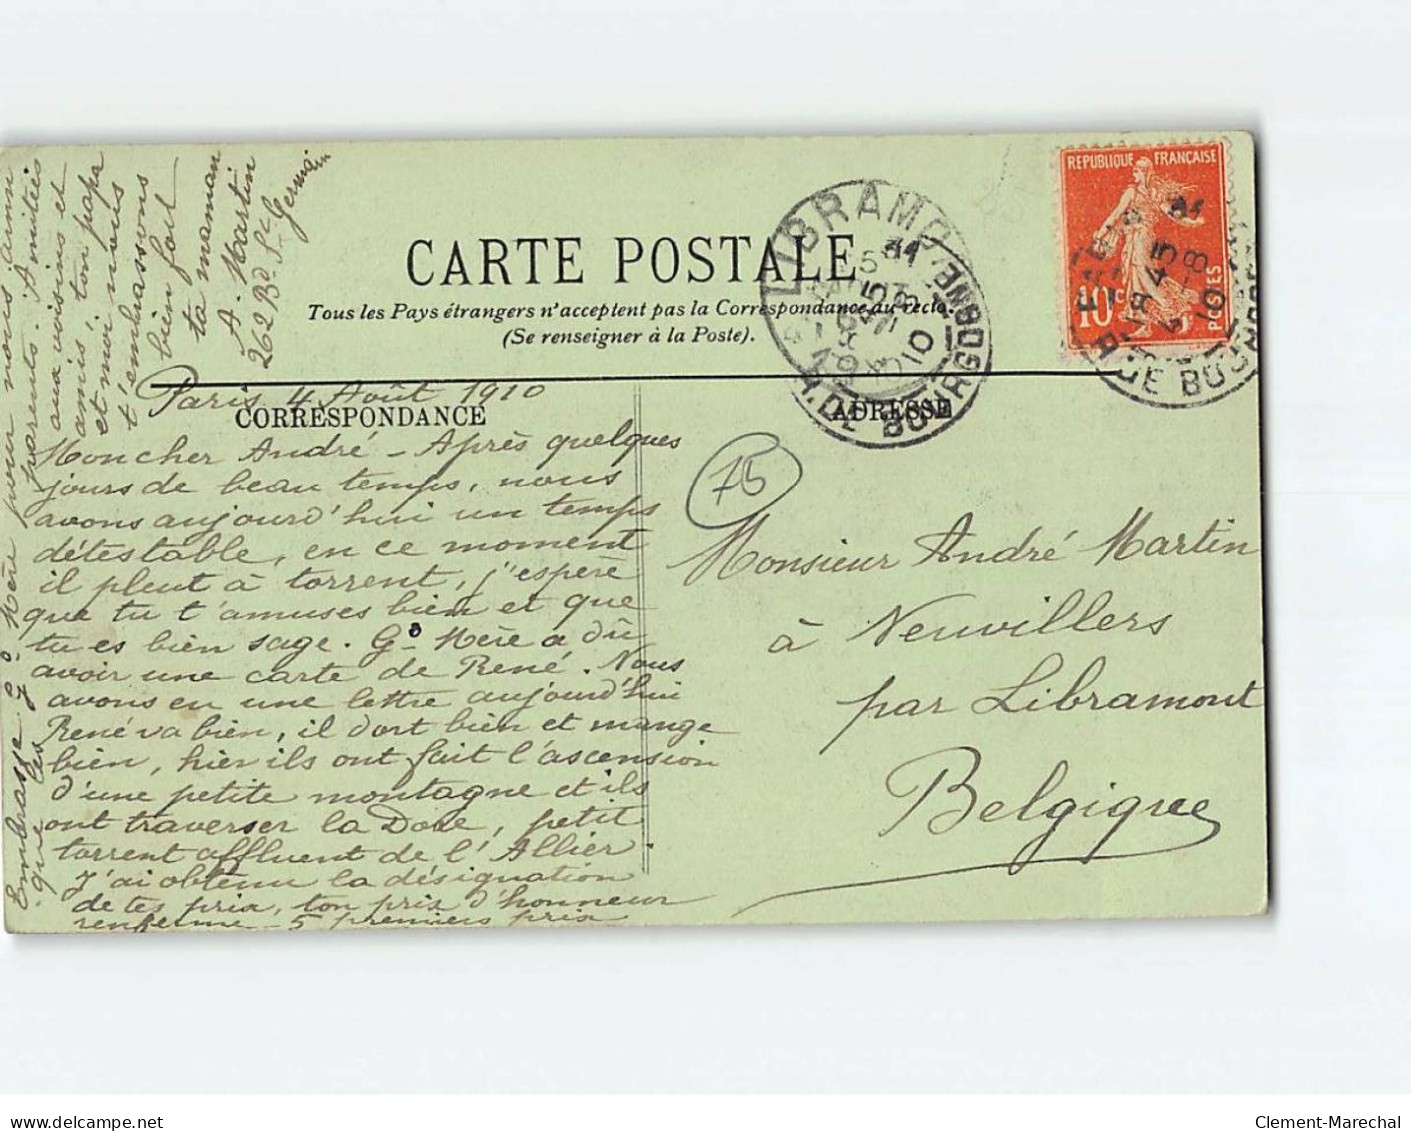 CARTE POSTALE
Tous les Pays étrangers n'acceptent pas la Correspondance au recto.
(Se renseigner à la Poste).
CORRESPONDANCE
ADRESSE
REPUBLIQUE FRANÇAISE
10c
POSTES
LIBRAMONT
R. DE BOURGOGNE
75
Paris 4 Août 1910
Mon cher André - Après quelques
jours de beau temps, nous
avons aujourd'hui un temps
détestable, en ce moment
il pleut à torrent, j'espère
que tu t'amuses bien et que
tu es bien sage. Gd Mère a dû
avoir une carte de René. Nous
avons eu une lettre aujourd'hui
René va bien, il dort bien et mange
bien, hier ils ont fait l'ascension
d'une petite montagne et ils
ont traverser la Dore, petit
torrent affluent de l'Allier.
J'ai obtenu la désignation
de tes prix, ton prix d'honneur
renferme 5 premiers prix
Embrasse Gd Mère pour nous ainsi
que les parents. Amitiés
aux voisins et
amis. ton papa
et moi nous
t'embrassons
bien fort
ta maman
A. Martin
262 Bd St
Germain
Monsieur André Martin
à Neuvillers
par Libramont
Belgique
Clement-Marechal